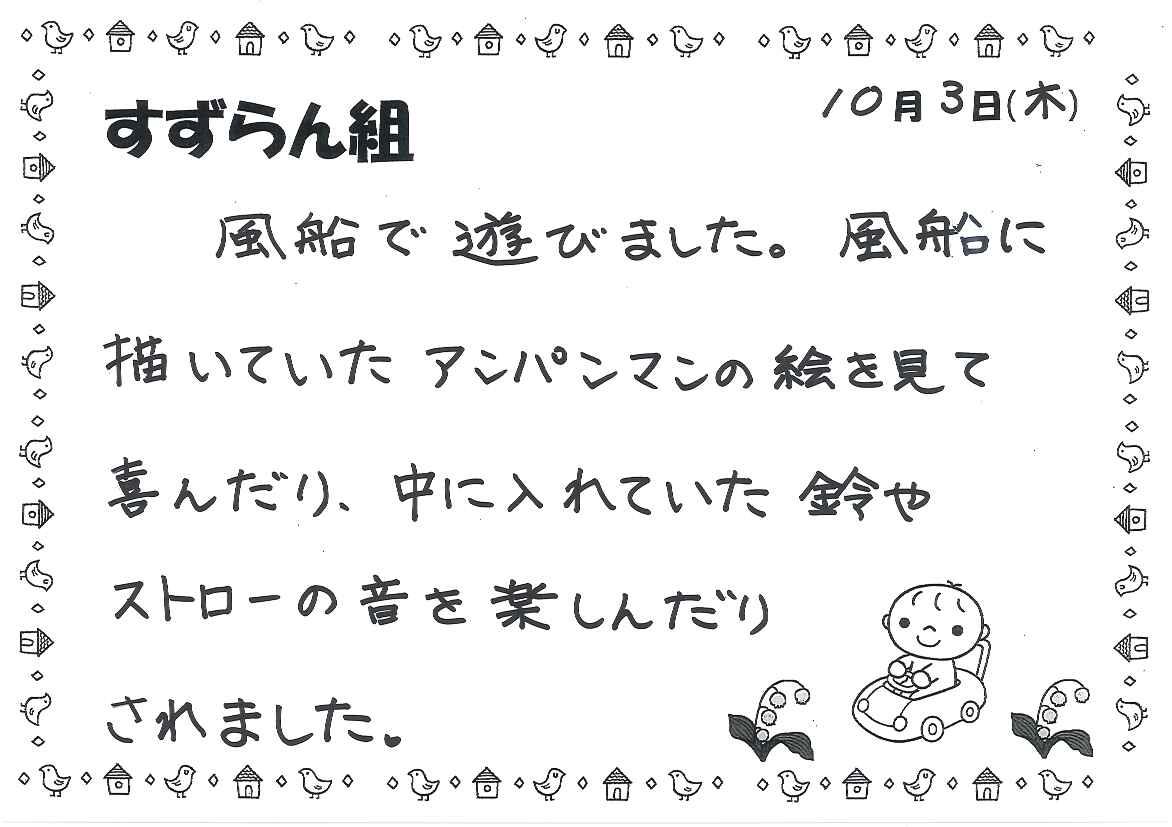 10月3日(木)
すずらん組
風船で遊びました。風船に
描いていたアンパンマンの絵を見て
喜んだり、中に入れていた鈴や
ストローの音を楽しんだり
されました。